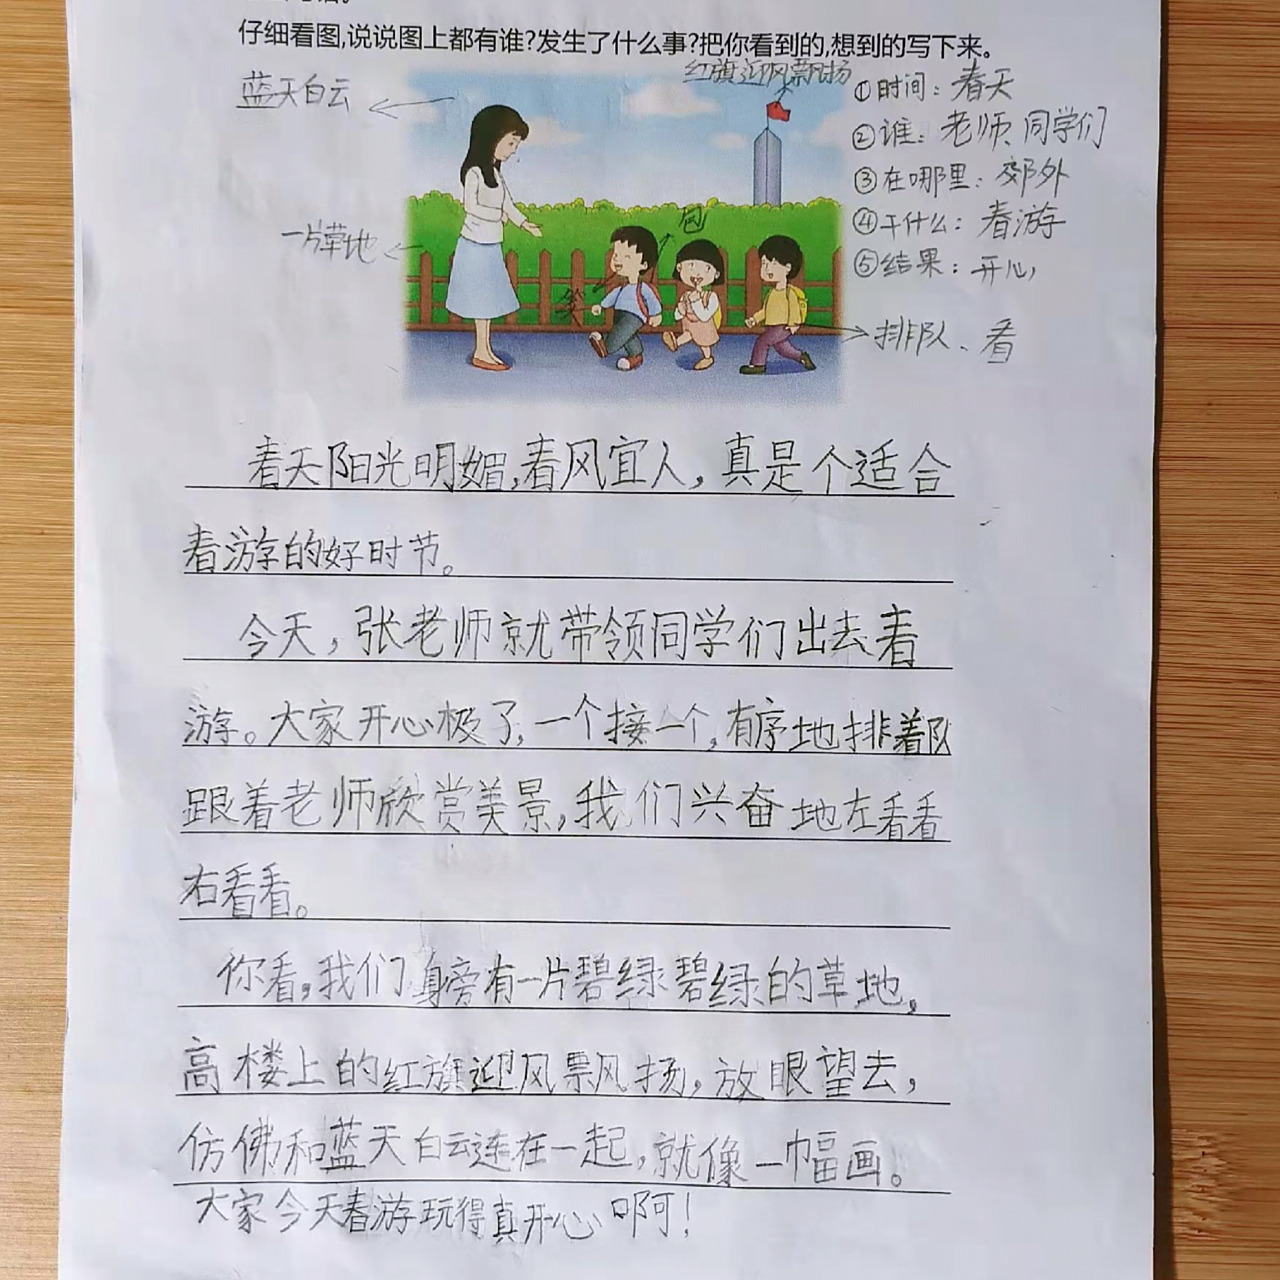 仔细看图,说说图上都有谁?发生了什么事?把你看到的,想到的写下来。
红旗迎风飘扬
蓝天白云
①时间：春天
②谁：老师、同学们
③在哪里：郊外
④干什么：春游
⑤结果：开心
一片草地
包
笑
排队、看
春天阳光明媚,春风宜人，真是个适合
春游的好时节。
今天，张老师就带领同学们出去春
游。大家开心极了,一个接一个,有序地排着队
跟着老师欣赏美景,我们兴奋地左看看
右看看。
你看,我们身旁有一片碧绿碧绿的草地,
高楼上的红旗迎风飘扬,放眼望去，
仿佛和蓝天白云连在一起,就像一幅画。
大家今天春游玩得真开心啊!